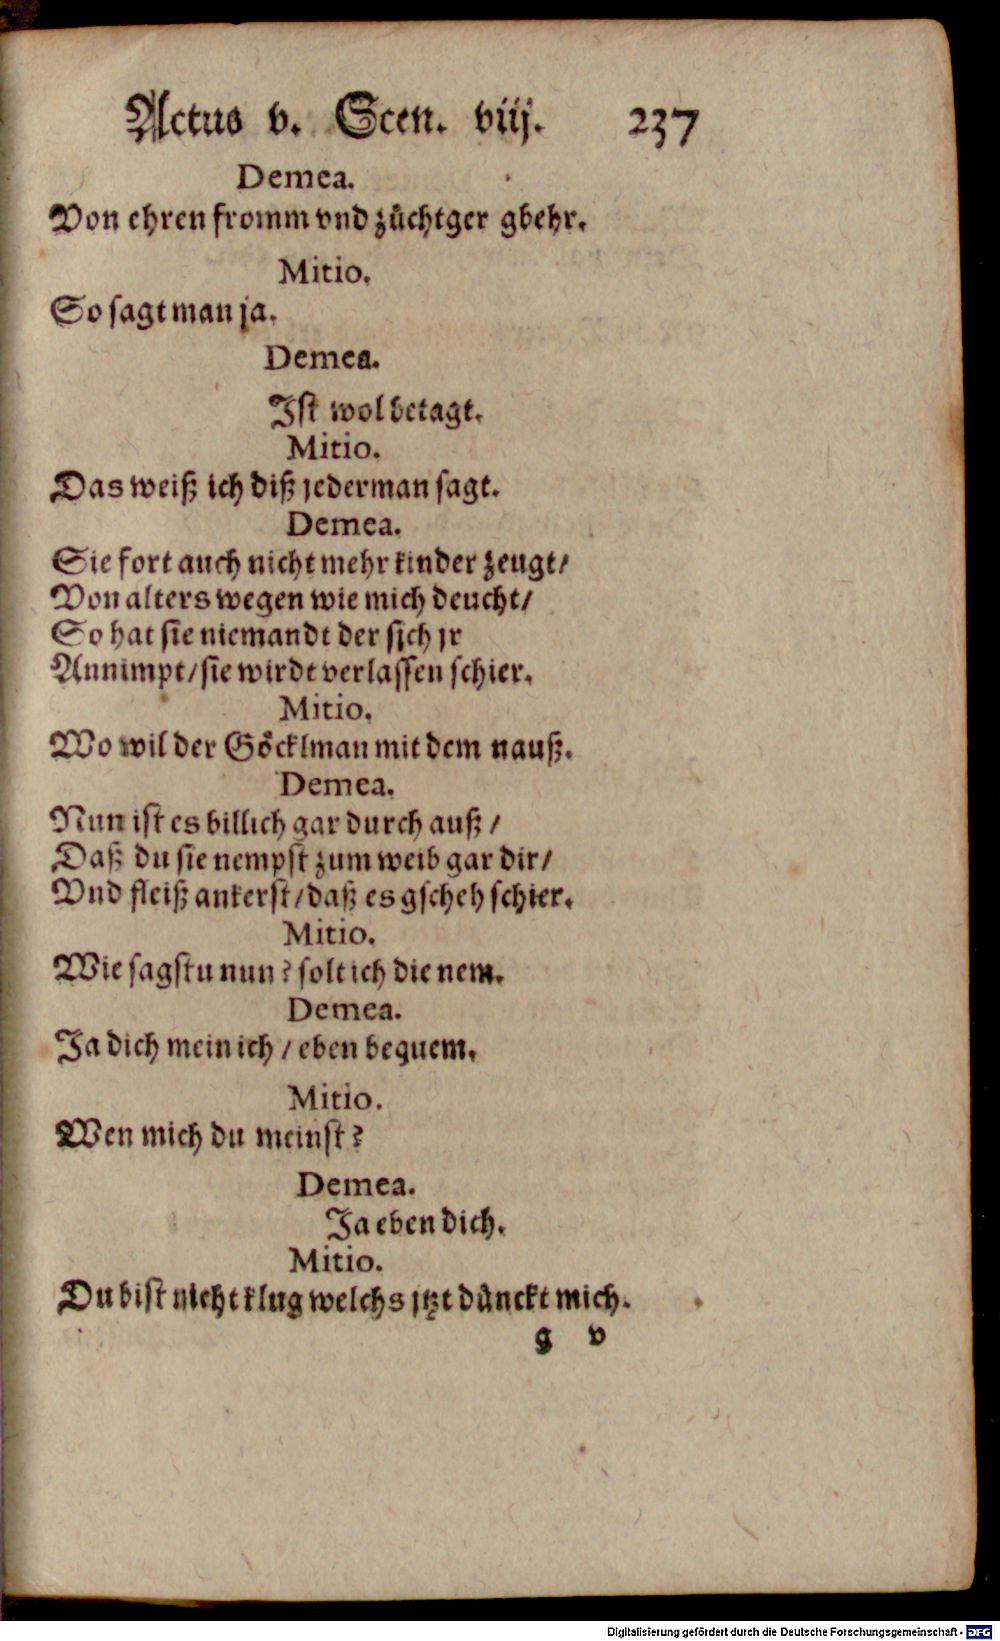 Actus v. Scen. viij. 237
Demea.
Von ehren fromm vnd züchtger gbehr.
Mitio.
So sagt man ja.
Demea.
Ist wol betagt.
Mitio.
Das weiß ich diß jederman sagt.
Demea.
Sie fort auch nicht mehr kinder zeugt/
Von alters wegen wie mich deucht/
So hat sie niemandt der sich jr
Annimpt/sie wirdt verlassen schier.
Mitio.
Wo wil der Göcklman mit dem nauß.
Demea.
Nun ist es billich gar durch auß/
Daß du sie nempst zum weib gar dir/
Vnd fleiß ankerst/daß es gscheh schier.
Mitio.
Wie sagstu nun? solt ich die nem.
Demea.
Ja dich mein ich/eben bequem.
Mitio.
Wen mich du meinst?
Demea.
Ja eben dich.
Mitio.
Du bist nicht klug welchs jtzt dünckt mich.
g v
Digitalisierung gefördert durch die Deutsche Forschungsgemeinschaft - DFG